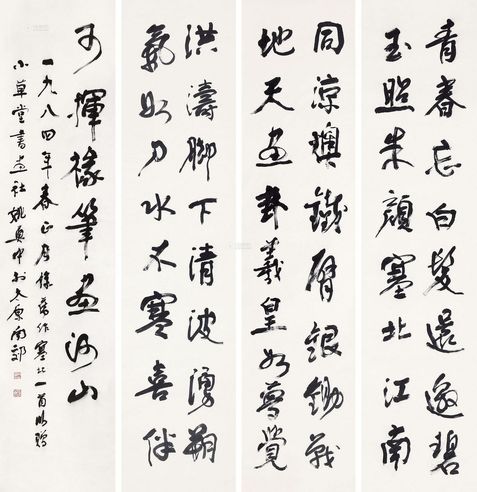 青春忘白髮還邀碧
玉照朱顏塞北江南
同涼燠鐵臂銀鋤戰
地天畫卦羲皇如夢覺
洪濤腳下清波湧朔
氣如刀水不寒喜伴
可揮椽筆畫河山
一九八四年春正月錄舊作塞北一首
小草堂書畫社姚奠中於太原南郊